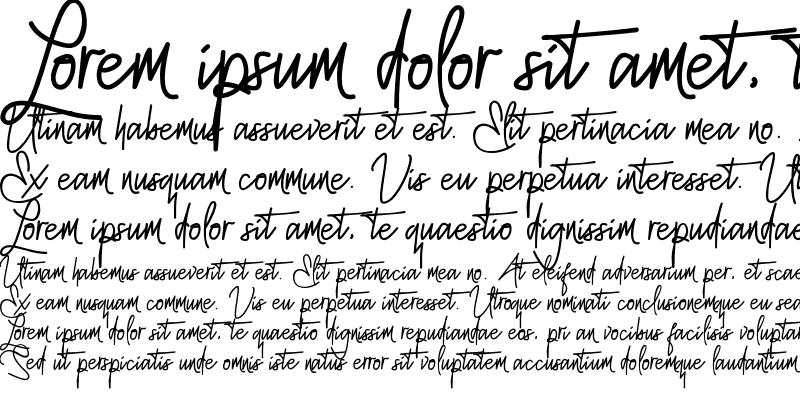 Lorem ipsum dolor sit amet, t
Utinam habemus assueverit et est. Elit pertinacia mea no.
Ex eam nusquam commune. Vis eu perpetua interesset. Ut
Lorem ipsum dolor sit amet, te quaestio dignissim repudiandae
Utinam habemus assueverit et est. Elit pertinacia mea no. At eleifend adversarium per, et scae
Ex eam nusquam commune. Vis eu perpetua interesset. Utroque nominati conclusionemque eu sea
Lorem ipsum dolor sit amet, te quaestio dignissim repudiandae eos, pri an vocibus facilisis volupta
Sed ut perspiciatis unde omnis iste natus error sit voluptatem accusantium doloremque laudantium